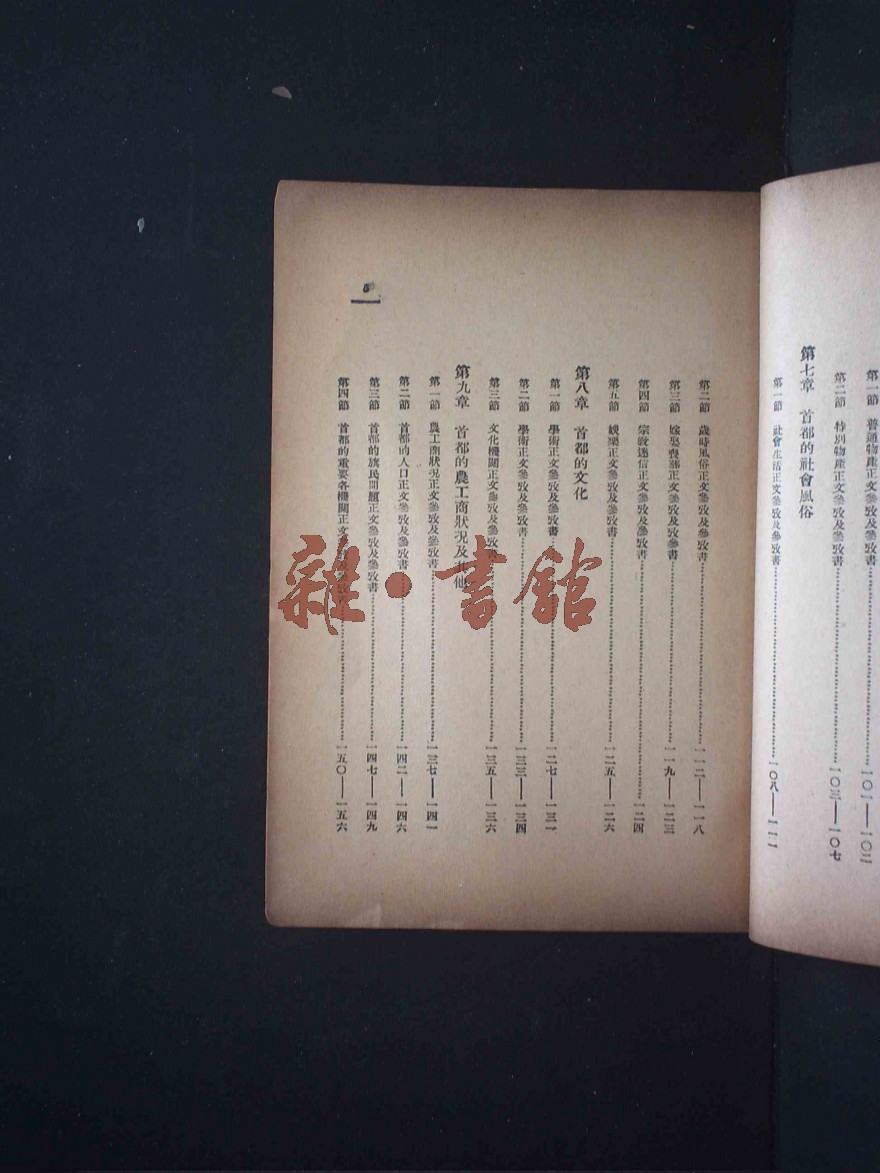 第一節　普通物產正文參攷及參攷書……一〇一——一〇二
第二節　特別物產正文參攷及參攷書……一〇三——一〇七
第七章　首都的社會風俗
第一節　社會生活正文參攷及參攷書……一〇八——一一一
第二節　歲時風俗正文參攷及參攷書……一一二——一一八
第三節　嫁娶喪葬正文參攷及參書……一一九——一二三
第四節　宗敎迷信正文參攷及參攷書……一二四
第五節　娛樂正文參攷及參攷書……一二五——一二六
第八章　首都的文化
第一節　學術正文參攷及參攷書……一二七——一三一
第二節　學術正文參攷及參攷書……一三三——一三四
第三節　文化機關正文參攷及參攷書……一三五——一三六
第九章　首都的農工商狀況及其他
第一節　農工商狀況正文參攷及參攷書……一三七——一四一
第二節　首都的人口正文參攷及參攷書……一四二——一四六
第三節　首都的旗民問題正文參攷及參攷書……一四七——一四九
第四節　首都的重要各機關正文參攷及參攷書……一五〇——一五六
雜·書館